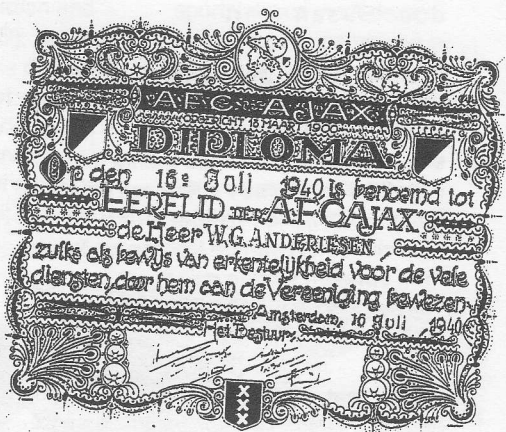 A.F.C. AJAX
OPGERICHT 18 MAART 1900
DIPLOMA.
Op den 16e Juli 1940 is benoemd tot
EERELID DER A.F.C. AJAX
de Heer W.G. ANDERIESEN
zulks als bewijs van erkentelijkheid voor de vele
diensten, door hem aan de Vereeniging bewezen.
Amsterdam, 16 Juli 1940
Het Bestuur
XXX